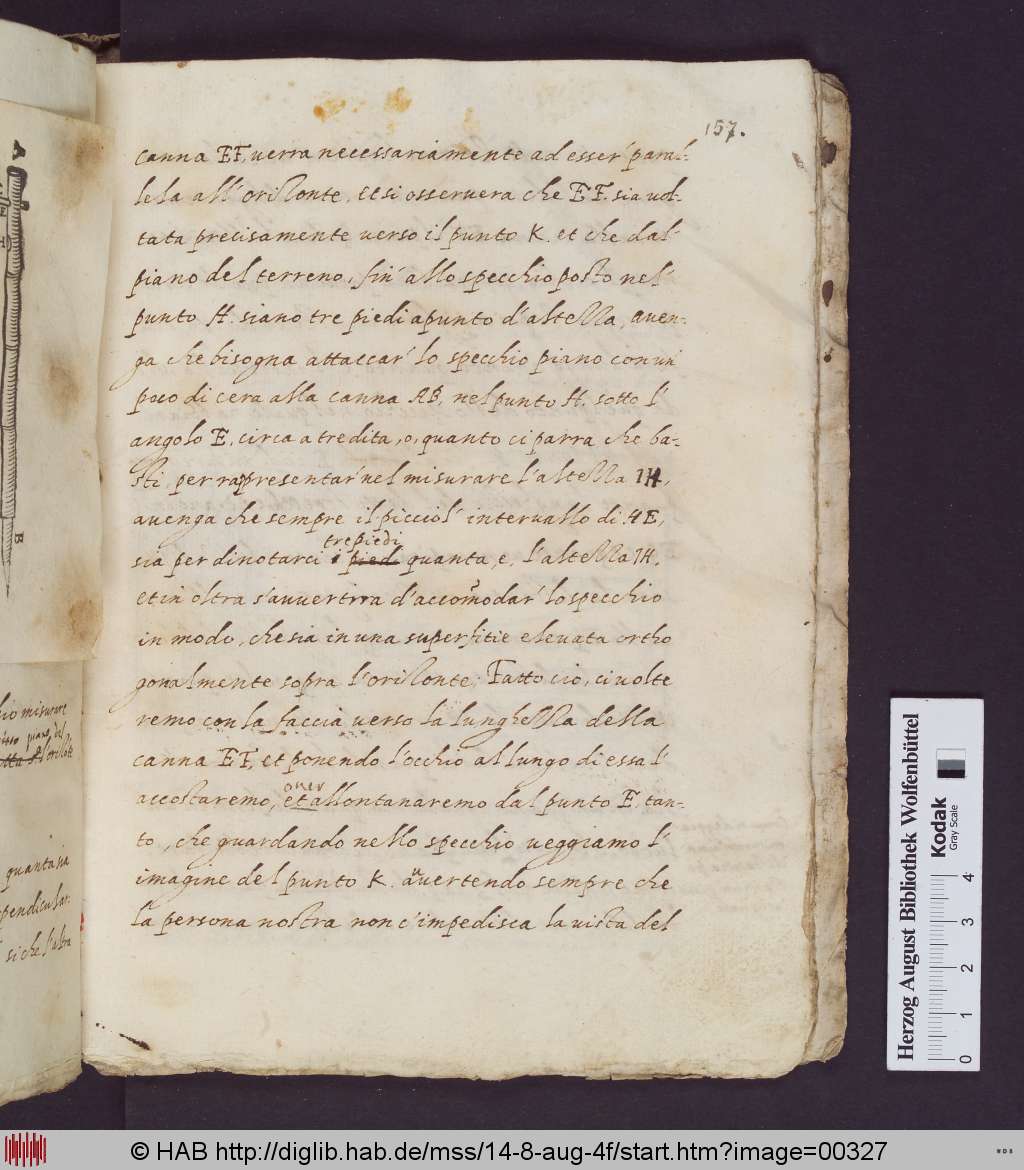 157.
canna EF, uerra necessariamente ad esser' paral-
lela all'orizonte, et si osseruera che EF. sia uol-
tata precisamente uerso il punto K. et che dal
piano del terreno, fin' allo specchio posto nel'
punto H. siano tre piedi apunto d'altezza, auen-
ga che bisogna attaccar' lo specchio piano con un'
poco di cera alla canna AB, nel punto H. sotto l'
angolo E, circa a tre dita, o, quanto ci parra che ba-
sti, per rapresentar' nel misurare l'altezza IH,
auenga che sempre il picciol' interuallo di HE,
tre piedi
sia per dinotarci i piedi quanta, e, l'altezza IH.
et in oltra s'auuertirra d'accommodar' lo specchio
in modo, che sia in una superfitie eleuata ortho
gonalmente sopra l'orizonte; Fatto cio, ci uolte
remo con la faccia uerso la lunghezza della
canna EF, et ponendo l'occhio al lungo di essa l'
ouer
accostaremo, et allontanaremo dal punto E, tan-
to, che guardando nello specchio ueggiamo l'
imagine del punto K. auuertendo sempre che
la persona nostra non c'impedisca la uista del
A
B
misurare
quanta sia
pendicular:
si che l'altra
Herzog August Bibliothek Wolfenbüttel
Kodak
Gray Scale
0 1 2 3 4
© HAB http://diglib.hab.de/mss/14-8-aug-4f/start.htm?image=00327